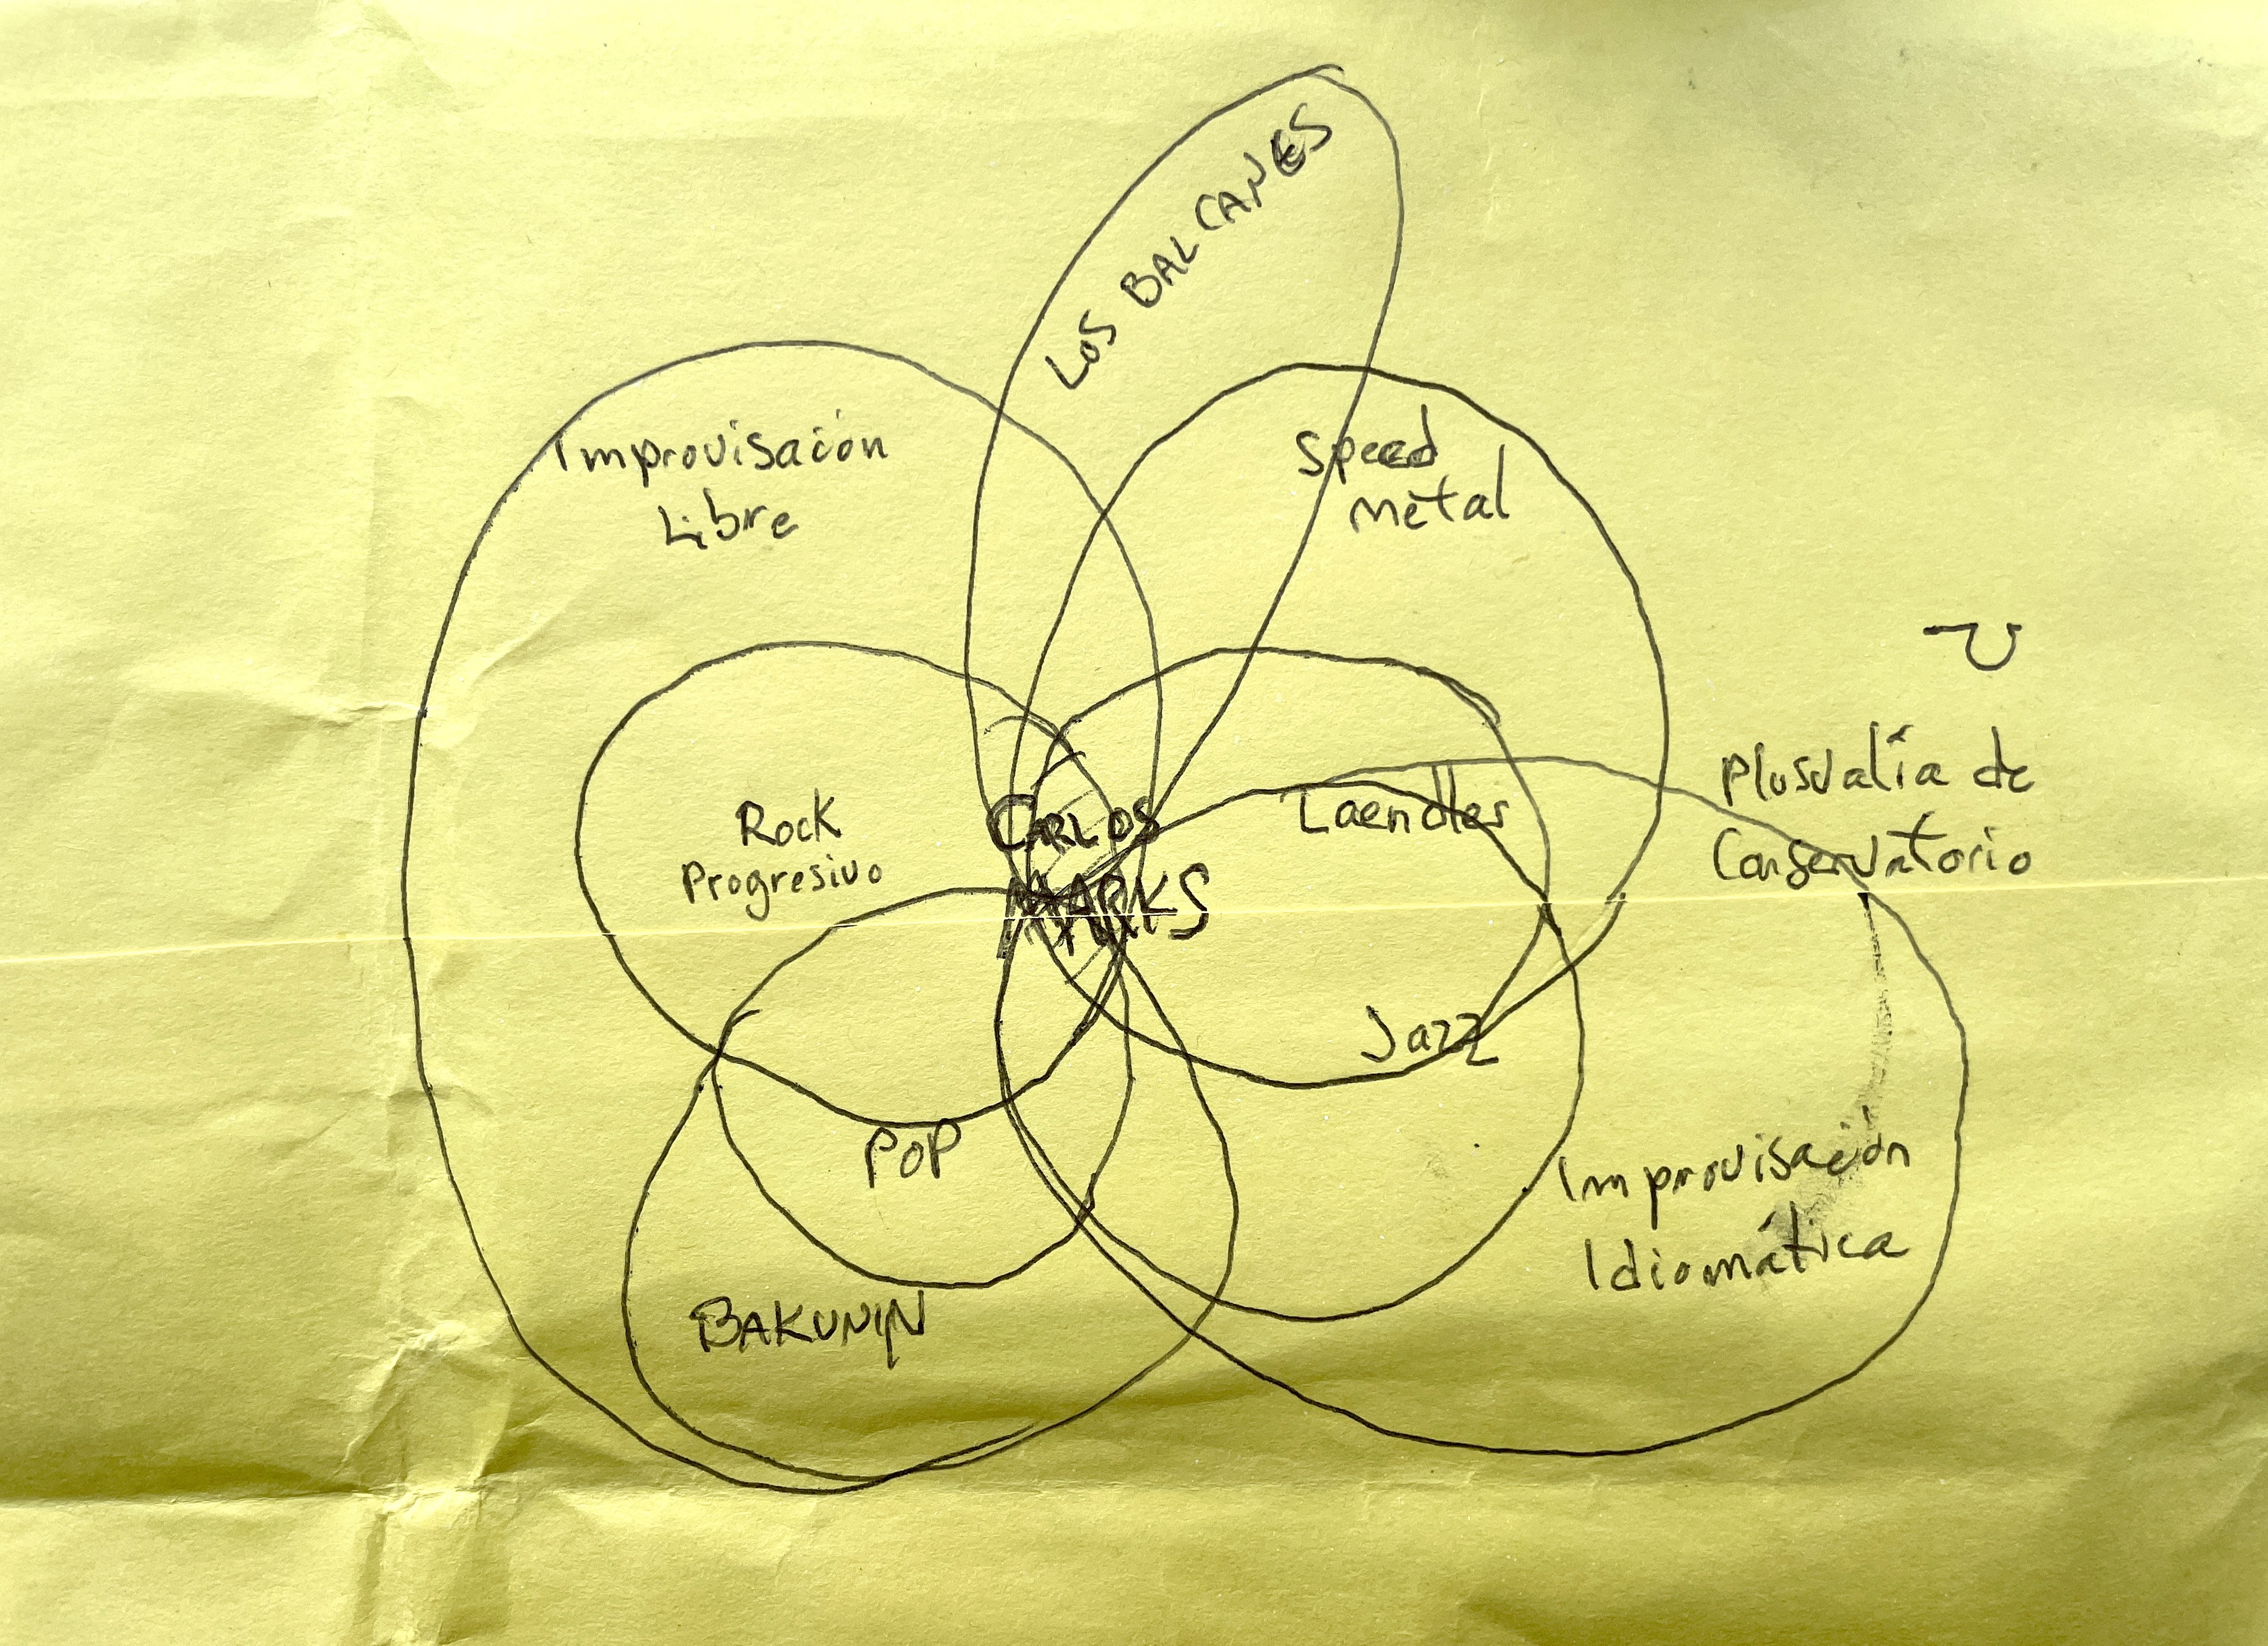 LOS BALCANES
Improvisación
Libre
Speed
metal
Plusvalía de
Conservatorio
Rock
Progresivo
CARLOS
MARKS
Laendler
Jazz
POP
Improvisación
Idiomática
BAKUNIN